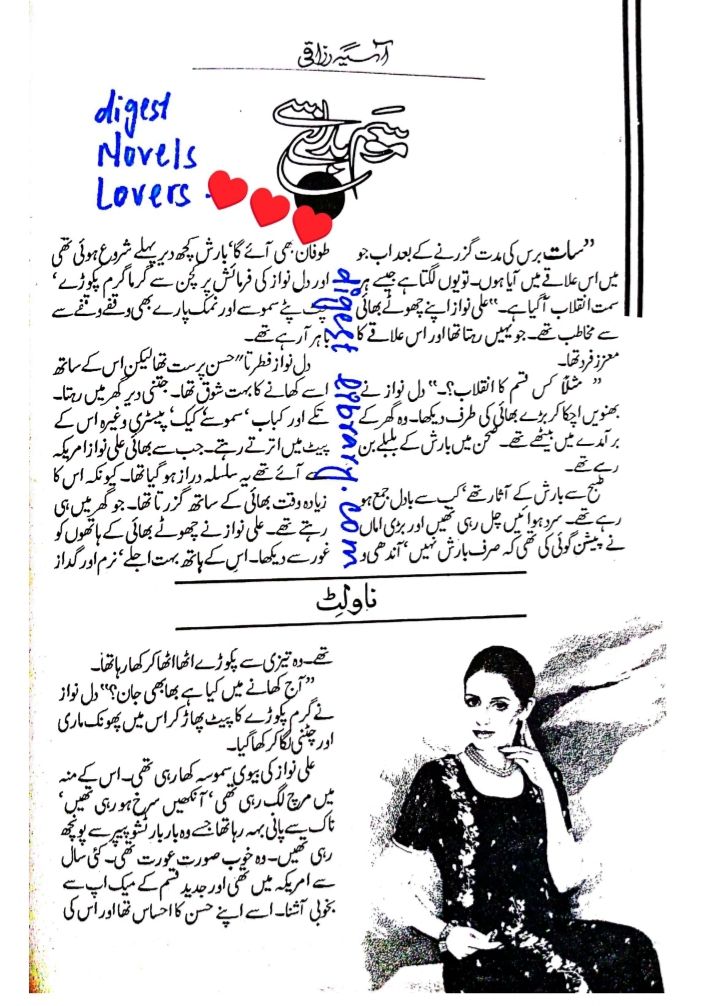 آسیہ رزاقی
digest
Novels
Lovers
"سات برس کی مدت گزرنے کے بعد اب جو
میں اس علاقے میں آیا ہوں۔ تو یوں لگتا ہے جیسے ہر
سمت انقلاب آگیا ہے۔" علی نواز اپنے چھوٹے بھائی
سے مخاطب تھے۔ جو یہیں رہتا تھا اور اس علاقے کا
معزز فرد تھا۔
"مثلاً کس قسم کا انقلاب؟" دل نواز نے
بھنویں اچکا کر بڑے بھائی کی طرف دیکھا۔ وہ گھر کے
برآمدے میں بیٹھے تھے۔ صحن میں بارش کے بلبلے بن
رہے تھے۔
صبح سے بارش کے آثار تھے، کب سے بادل جمع ہو
رہے تھے۔ سرد ہوائیں چل رہی تھیں اور بڑی اماں
نے پیشن گوئی کی تھی کہ صرف بارش نہیں، آندھی و
طوفان بھی آئے گا، بارش کچھ دیر پہلے شروع ہوئی تھی
اور دل نواز کی فرمائش پر کچن سے گرما گرم پکوڑے،
چٹ پٹے سموسے اور نمک پارے بھی وقفے وقفے سے
باہر آرہے تھے۔
دل نواز فطرتاً حسن پرست تھا لیکن اس کے ساتھ
اسے کھانے کا بہت شوق تھا۔ جتنی دیر گھر میں رہتا۔
تکے اور کباب، سموسے، کیک، پیسٹری وغیرہ اس کے
پیٹ میں اترتے رہتے۔ جب سے بھائی علی نواز امریکہ
سے آئے تھے یہ سلسلہ دراز ہو گیا تھا۔ کیونکہ اس کا
زیادہ وقت بھائی کے ساتھ گزرتا تھا۔ جو گھر میں ہی
رہتے تھے۔ علی نواز نے چھوٹے بھائی کے ہاتھوں کو
غور سے دیکھا۔ اس کے ہاتھ بہت اجلے، نرم اور گداز
digest library.com
ناولٹ
تھے۔ وہ تیزی سے پکوڑے اٹھا اٹھا کر کھا رہا تھا۔
"آج کھانے میں کیا ہے بھابھی جان؟" دل نواز
نے گرم پکوڑے کا پیٹ پھاڑ کر اس میں پھونک ماری
اور چٹنی لگا کر کھا گیا۔
علی نواز کی بیوی سموسہ کھا رہی تھی۔ اس کے منہ
میں مرچ لگ رہی تھی، آنکھیں سرخ ہو رہی تھیں،
ناک سے پانی بہہ رہا تھا جسے وہ بار بار ٹشو پیپر سے پونچھ
رہی تھیں۔ وہ خوب صورت عورت تھی۔ کئی سال
سے امریکہ میں تھی اور جدید قسم کے میک اپ سے
بخوبی آشنا۔ اسے اپنے حسن کا احساس تھا اور اس کی